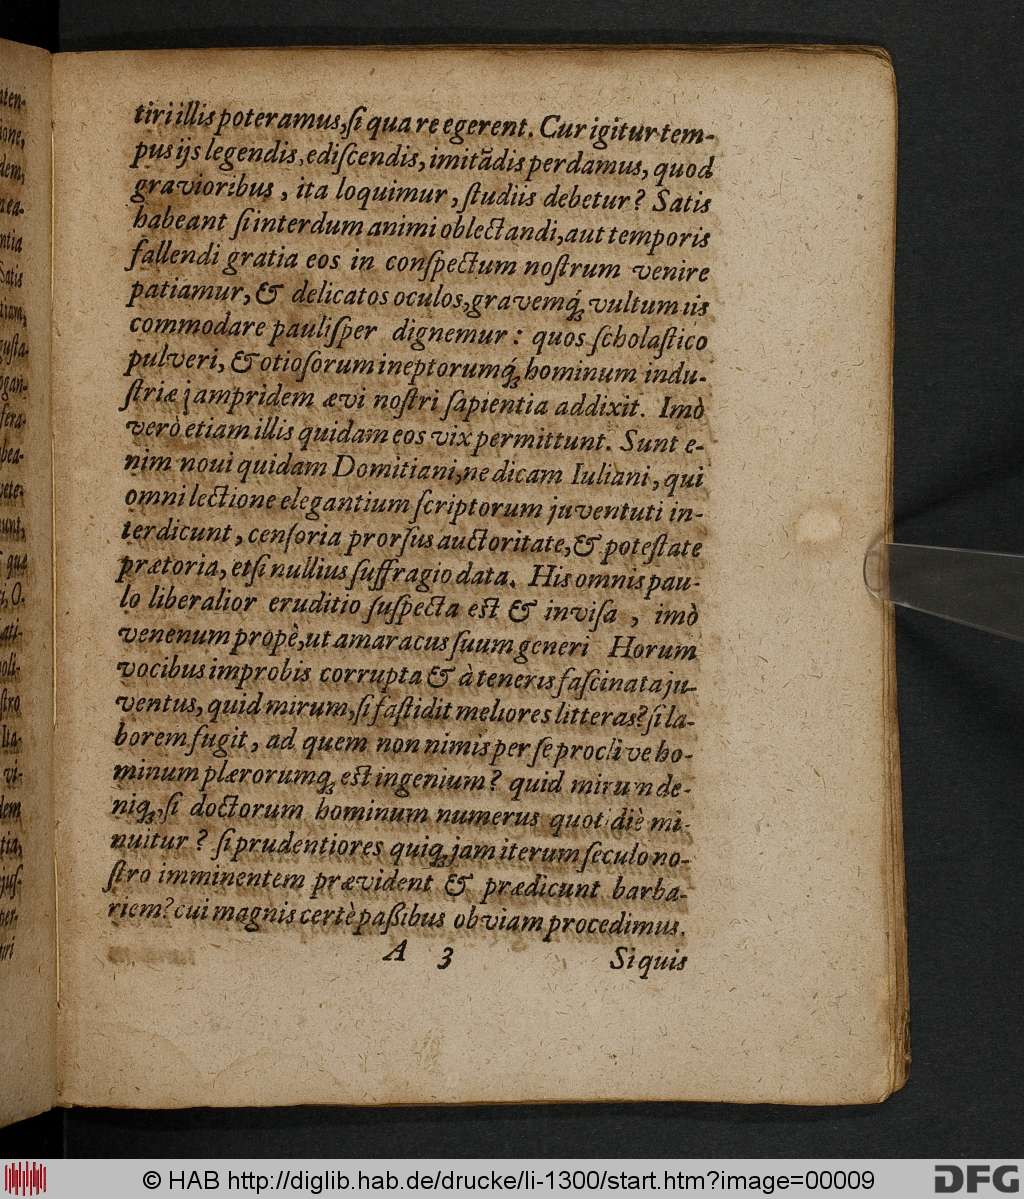 tiri illis poteramus, ſi qua re egerent. Cur igitur tem-
pus ijs legendis, ediſcendis, imitādis perdamus, quod
gravioribus, ita loquimur, ſtudiis debetur? Satis
habeant ſi interdum animi oblectandi, aut temporis
fallendi gratia eos in conſpectum noſtrum venire
patiamur, & delicatos oculos, gravemq́; vultum iis
commodare pauliſper dignemur: quos ſcholaſtico
pulveri, & otioſorum ineptorumq́; hominum indu-
ſtriæ jampridem ævi noſtri ſapientia addixit. Imò
verò etiam illis quidam eos vix permittunt. Sunt e-
nim noui quidam Domitiani, ne dicam Iuliani, qui
omni lectione elegantium ſcriptorum juventuti in-
terdicunt, cenſoria prorſus auctoritate, & poteſtate
prætoria, etſi nullius ſuffragio data. His omnis pau-
lo liberalior eruditio ſuſpecta eſt & inviſa, imò
venenum propè, ut amaracus ſuum generi Horum
vocibus improbis corrupta & à teneris faſcinata ju-
ventus, quid mirum, ſi faſtidit meliores litteras? ſi la-
borem fugit, ad quem non nimis per ſe proclive ho-
minum plærorumq; eſt ingenium? quid mirum de-
niq;, ſi doctorum hominum numerus quotidiè mi-
nuitur? ſi prudentiores quiq; jam iterum ſeculo no-
ſtro imminentem prævident & prædicunt barba-
riem? cui magnis certè paßibus obviam procedimus.
A 3 Si quis
© HAB http://diglib.hab.de/drucke/li-1300/start.htm?image=00009
DFG